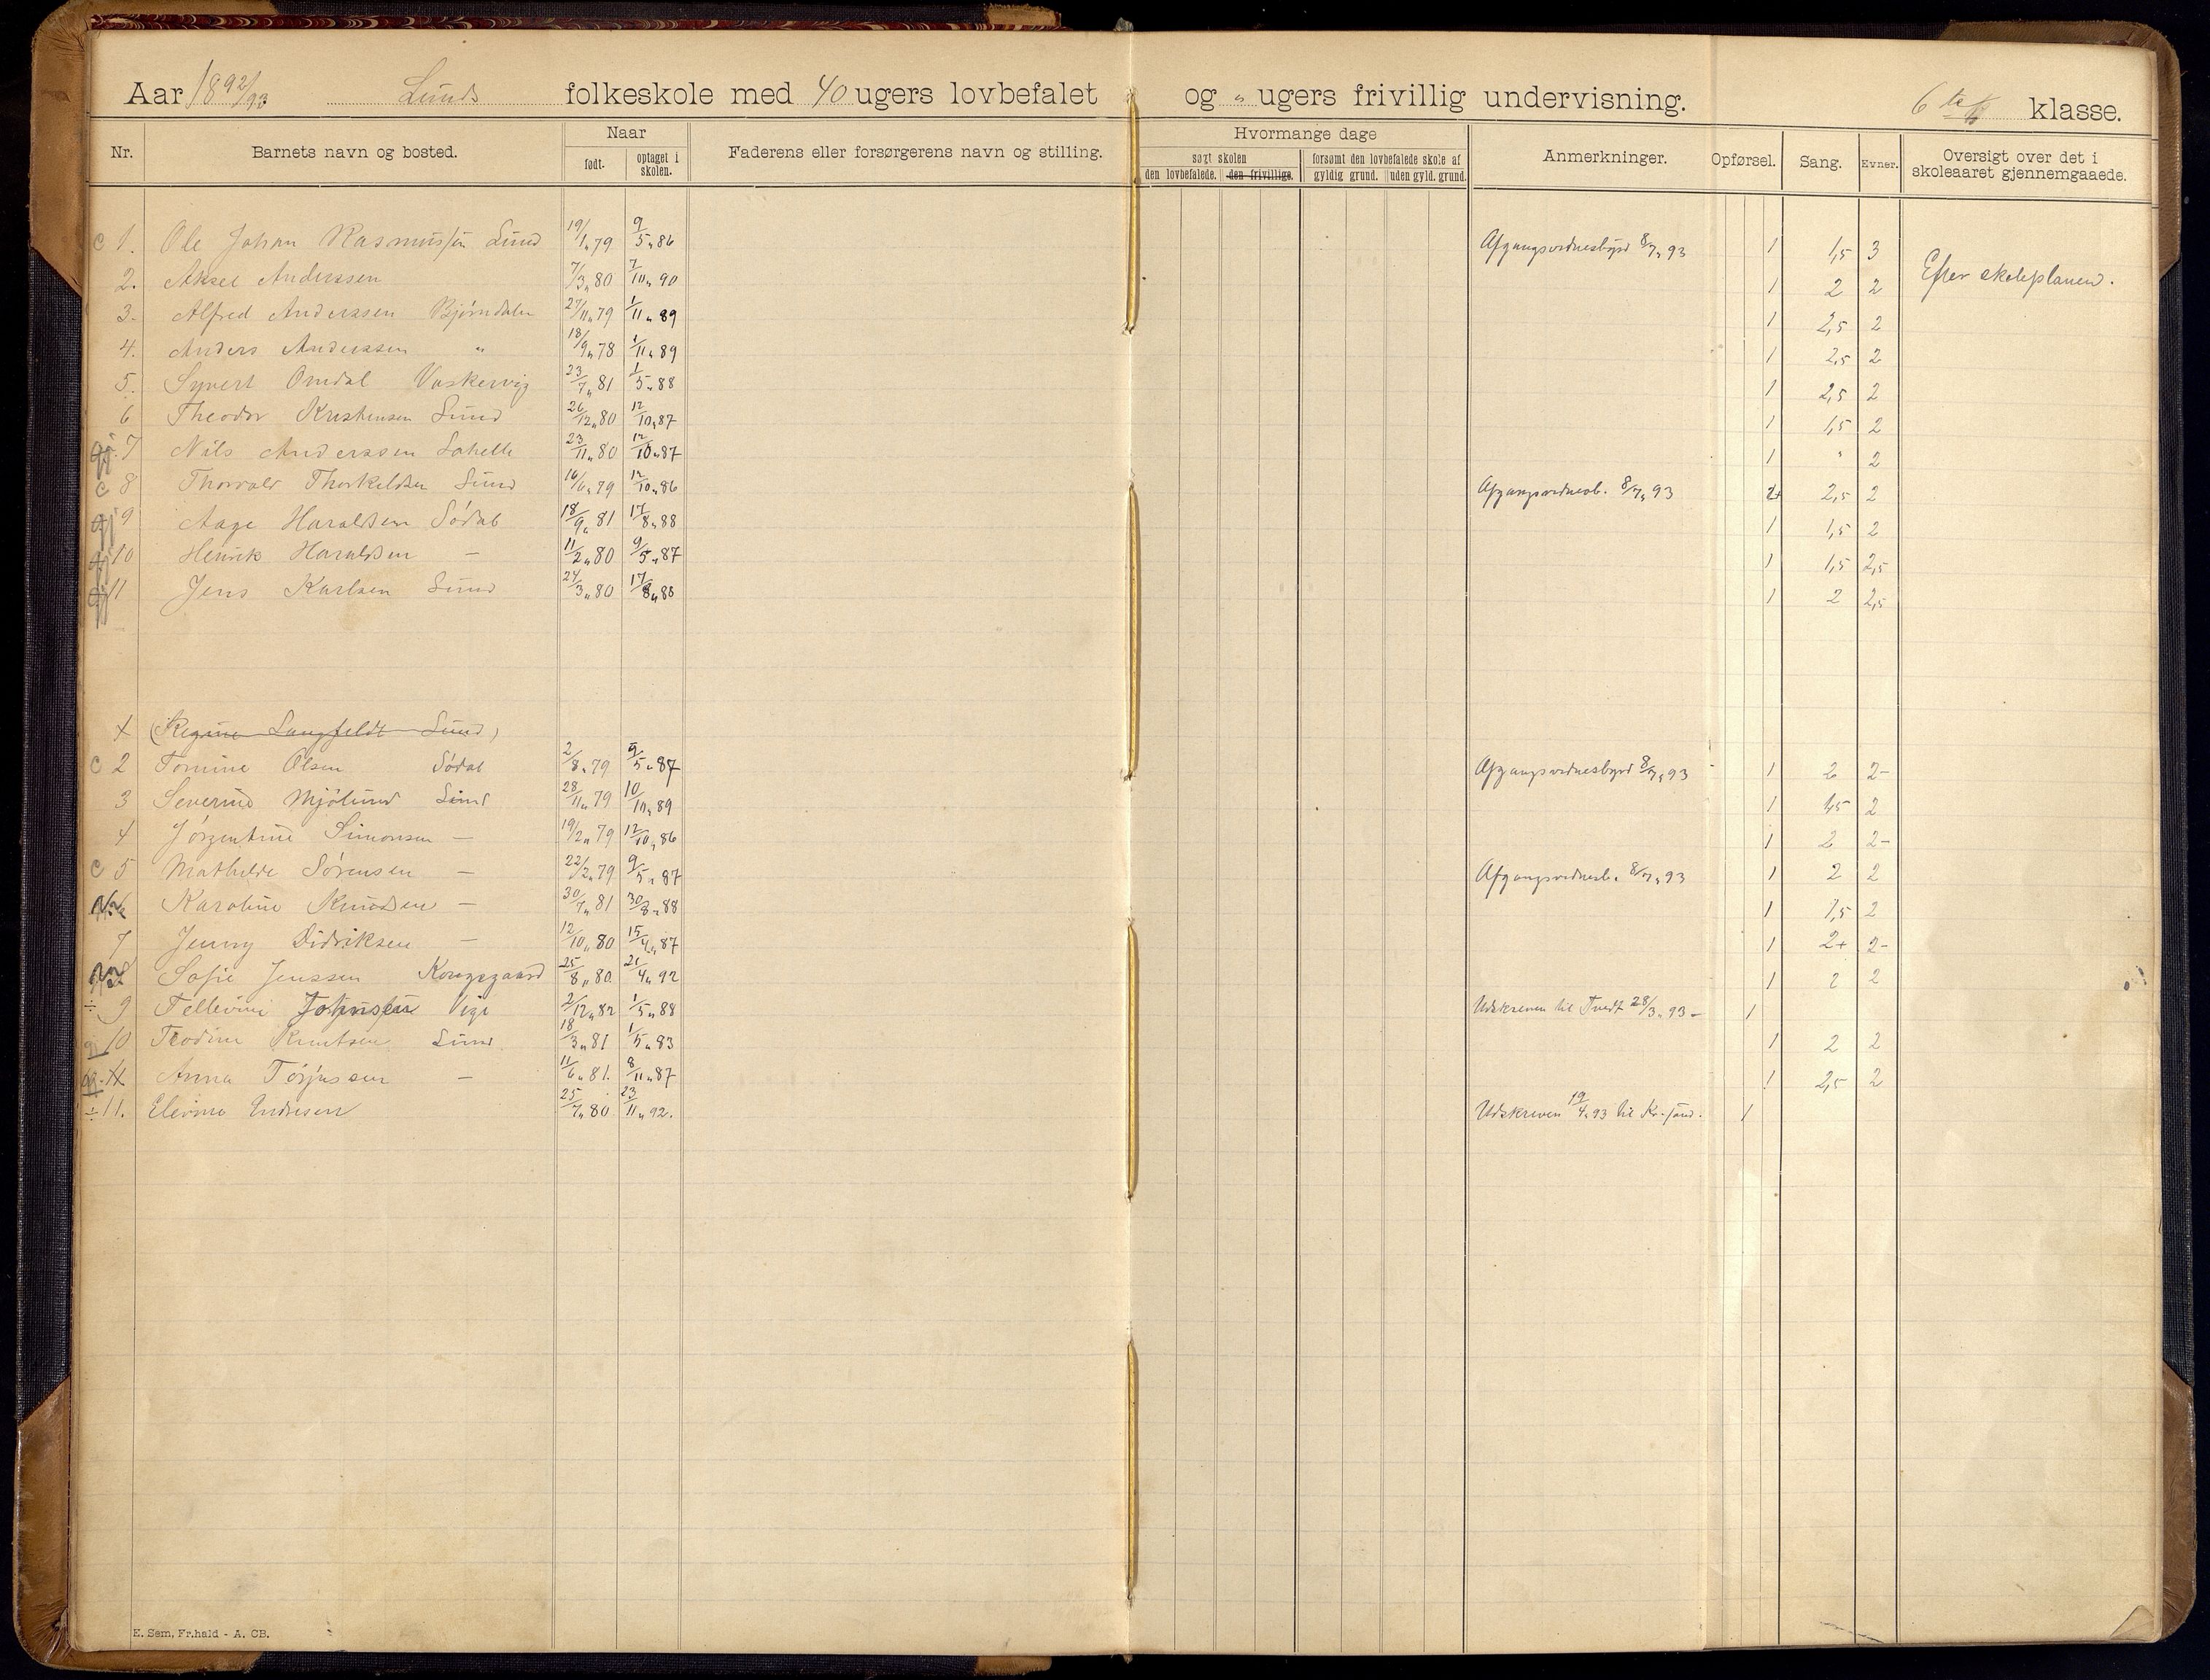 Aar 1892/93 Lunds folkeskole med 40 ugers lovbefalet og " ugers frivillig undervisning. 6te klasse.
Nr. Barnets navn og bosted. Naar født. optaget i skolen. Faderens eller forsørgerens navn og stilling. Hvormange dage søgt skolen den lovbefalede. den frivillige. forsømt den lovbefalede skole af gyldig grund. uden gyld. grund. Anmerkninger. Opførsel. Sang. Evner. Oversigt over det i skoleaaret gjennemgaaede.
c 1. Ole Johan Rasmussen Lund 19/1 79 9/5 86 Afgangsvidnesbyrd 8/7 93 1 1,5 3
2. Aksel Anderssen 7/3 80 7/10 90 1 2 2 Efter skoleplanen.
3. Alfred Anderssen Bjørndalen 27/11 79 1/11 89 1 2,5 2
4. Anders Anderssen " 18/9 78 1/11 89 1 2,5 2
5. Syvert Omdal Vaskervig 23/7 81 1/5 88 1 2,5 2
6 Theodor Kristensen Lund 26/12 80 12/10 87 1 1,5 2
gj. 7 Nils Anderssen Lahelle 23/11 80 12/10 87 1 " 2
c 8 Thorvald Thorkeldsen Lund 16/6 79 12/10 86 Afgangsvidnesb. 8/7 93 2+ 2,5 2
gj 9 Aage Haraldsen Sødal 18/9 81 17/8 88 1 1,5 2
gj 10 Henrik Haraldsen — 11/2 80 9/5 87 1 1,5 2,5
gj 11 Jens Karlsen Lund 24/3 80 17/8 88 1 2 2,5
(Regine Langfeldt Lund)
c 2 Tomine Olsen Sødal 2/8 79 9/5 87 Afgangsvidnesbyrd 8/7 93 1 2 2-
3 Severine Mjølund Lund 28/11 79 10/10 89 1 1,5 2
4 Jørgentine Simonsen — 19/2 79 12/10 86 1 2 2-
c 5 Mathilde Sørensen — 22/2 79 9/5 87 Afgangsvidnesb. 8/7 93 1 2 2
6 Karoline Knudsen — 30/7 81 30/8 88 1 1,5 2
7 Jenny Didriksen — 12/10 80 15/4 87 1 2+ 2-
8 Sofie Jenssen Kongsgaard 25/8 80 21/4 92 1 2 2
÷ 9 Tellevine Johnsen Vige 2/12 82 1/5 88 Udskreven til Tvedt 28/3 93 — 1
10 Teodine Knutsen Lund 18/3 81 1/5 83 1 2 2
Anna Torjussen — 11/6 81. 8/11 87 1 2,5 2
÷ 11. Elevine Endresen 25/7 80 23/11 92. Udskreven 19/4 93 til Kr.sand. 1
E. Sem, Fr.hald - A. CB.